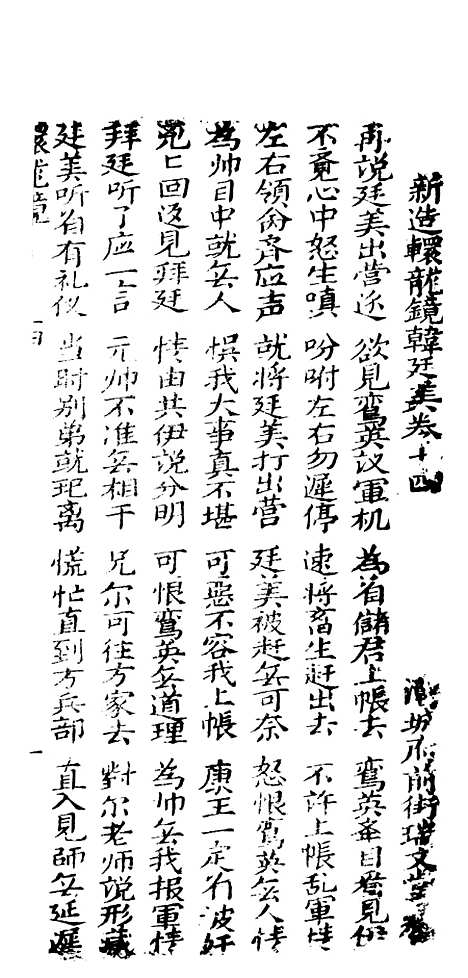 新造轘龍鏡韓廷美卷十四 潮州府前街瑞文堂
再說廷美出營近 欲見鸞英议軍机 為着儲君上帳去 鸞英举目看見伊
不竟心中怒生嗔 吩咐左右勿遲停 速将畜生赶出去 不許上帳乱軍情
左右領命齐应声 就将廷美打出营 廷美被赶無可奈 怒恨鸞英無人情
為帅目中就無人 悮我大事真不堪 可惡不容我上帳 康王一定着波奸
兎匕回返見拜廷 情由共伊說分明 可恨鸞英無道理 為帅無我报軍情
拜廷听了应一言 元帅不准無相干 兄尔可往方家去 對尔老师說形藏
廷美听着有礼仪 当时别弟就起离 慌忙直到方兵部 直入見師無延遲
轘龍鏡 一